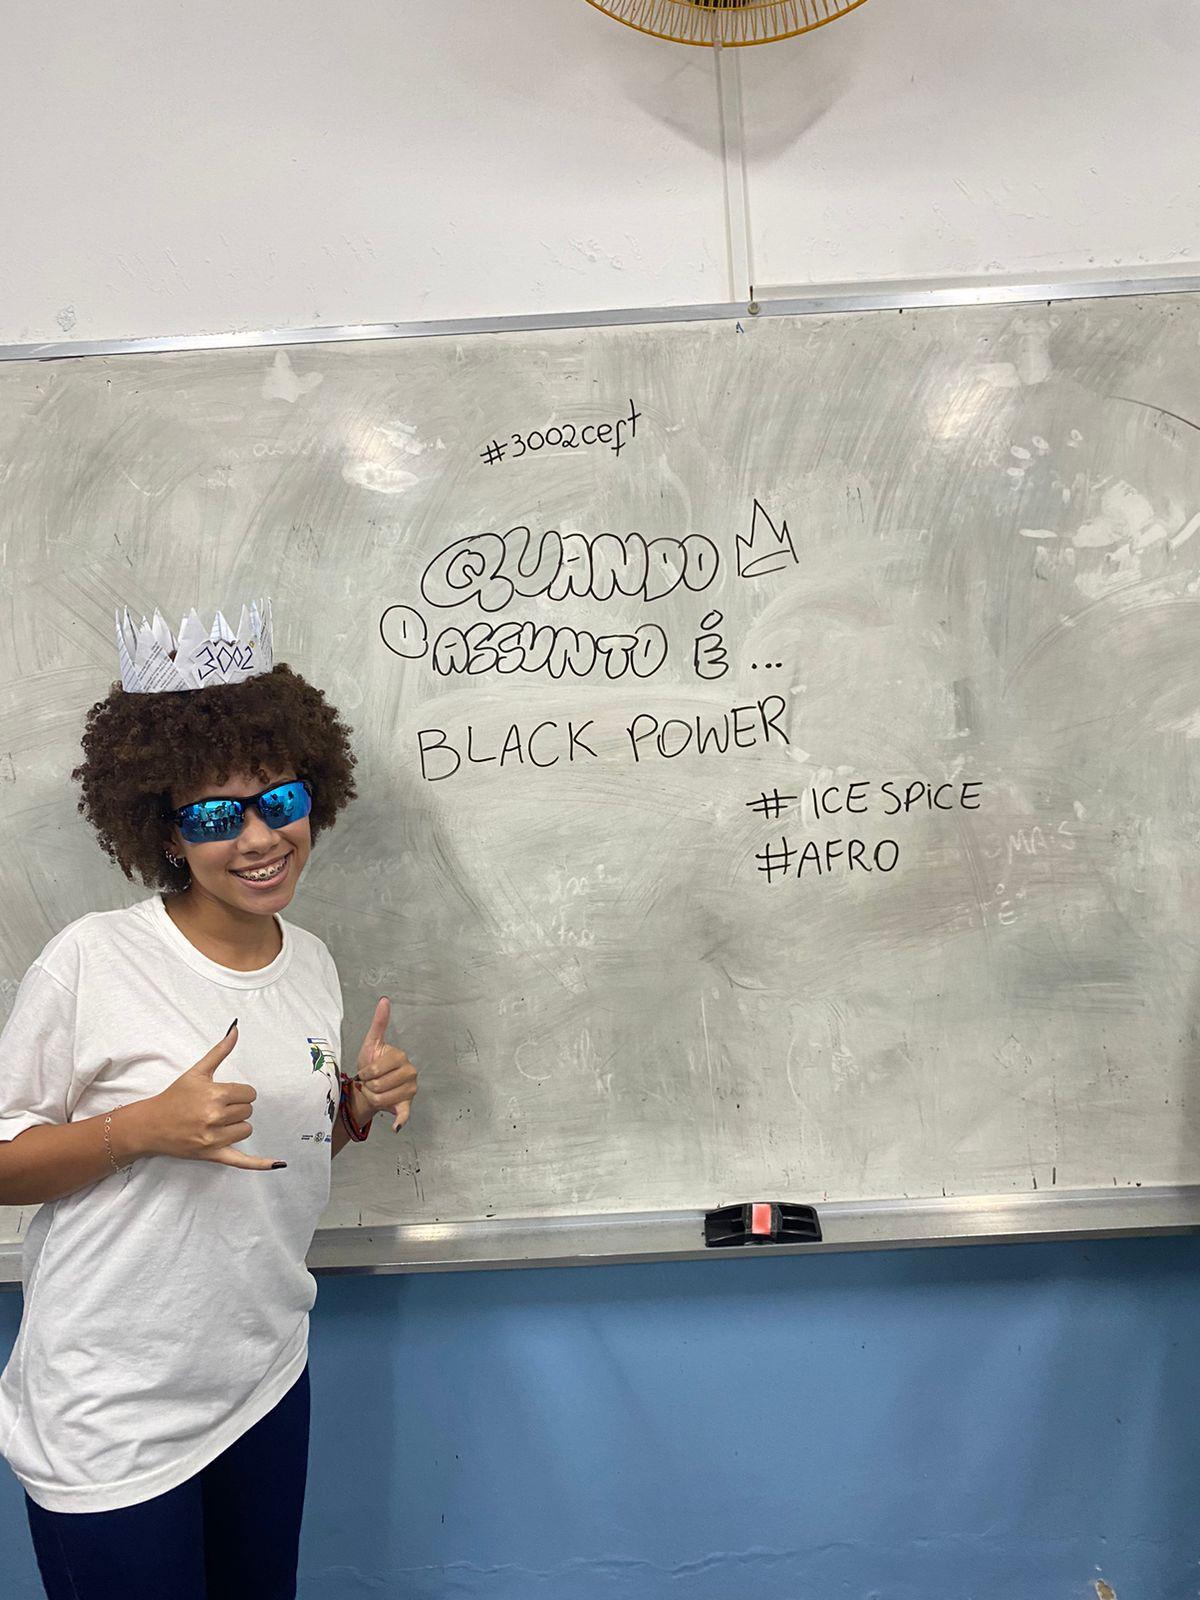 #3002ceft
QUANDO
O ASSUNTO É...
BLACK POWER
# ICE SPICE
#AFRO
3002